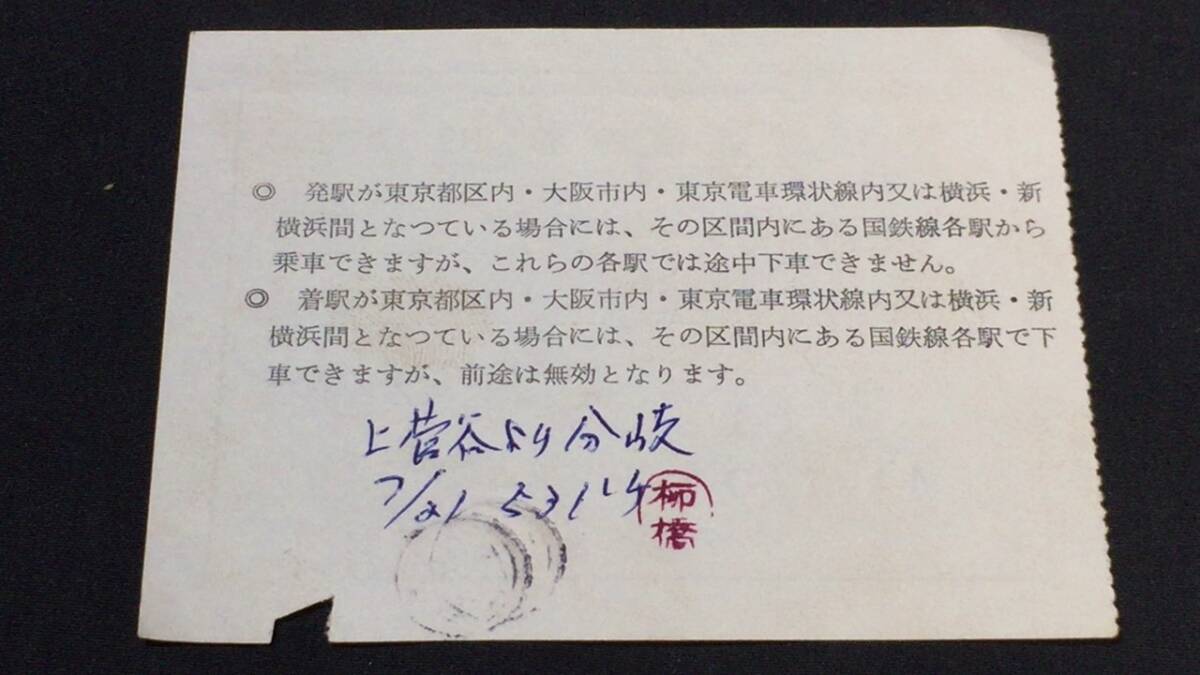 ◎ 発駅が東京都区内・大阪市内・東京電車環状線内又は横浜・新
横浜間となつている場合には、その区間内にある国鉄線各駅から
乗車できますが、これらの各駅では途中下車できません。
◎ 着駅が東京都区内・大阪市内・東京電車環状線内又は横浜・新
横浜間となつている場合には、その区間内にある国鉄線各駅で下
車できますが、前途は無効となります。
上菅谷より分岐
7/21 531
柳橋